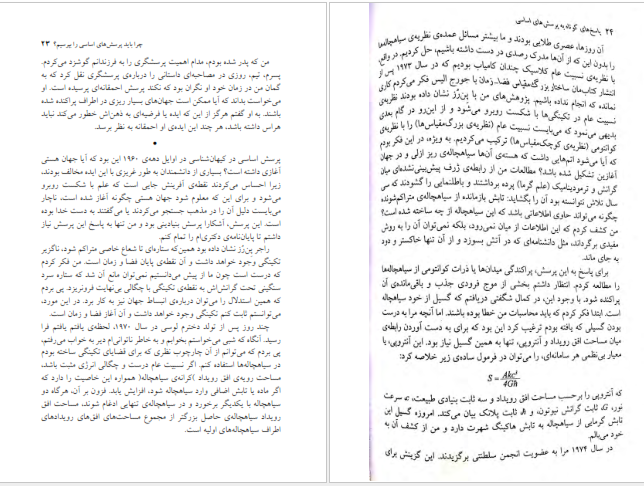 چرا باید پرسش‌های اساسی را بپرسیم؟ ۲۳
من که پدر شده بودم، مدام اهمیت پرسشگری را به فرزندانم گوشزد می‌کردم.
پسرم، تیم، روزی در مصاحبه‌ای داستانی را درباره‌ی پرسشگری نقل کرد که به
گمان من در زمان خود او نگران بود که نکند پرسش احمقانه‌ای پرسیده است. او
می‌خواست بداند که آیا ممکن است جهان‌های بسیار ریزی در اطراف پراکنده شده
باشند. به او گفتم هرگز از این که ایده یا فرضیه‌ای به ذهن‌اش خطور می‌کند نباید
هراس داشته باشد، هر چند این ایده‌ی او احمقانه به نظر برسد.
•
پرسش اساسی در کیهان‌شناسی در اوایل دهه‌ی ۱۹۶۰ این بود که آیا جهان هستی
آغازی داشته است؟ بسیاری از دانشمندان به طور غریزی با این ایده مخالف بودند،
زیرا احساس می‌کردند نقطه‌ی آفرینش جایی است که علم با شکست روبرو
می‌شود و برای این که معلوم شود جهان هستی چگونه آغاز شده است، ناچار
می‌بایست دلیل آن را در مذهب جستجو می‌کردند یا می‌گفتند به دست خدا بوده
است. این پرسش، آشکارا پرسش بنیادینی بود و من تنها به پاسخ این پرسش نیاز
داشتم تا پایان‌نامه‌ی دکتری‌ام را تمام کنم.
راجر پن‌رُز نشان داده بود همین‌که ستاره‌ای تا شعاع خاصی متراکم شود، ناگزیر
تکینگی وجود خواهد داشت و آن نقطه‌ی پایان فضا و زمان است. من فکر کردم
که درست است چون ما از پیش می‌دانستیم نمی‌توان مانع آن شد که ستاره سرد
سنگینی تحت گرانش‌اش به نقطه‌ی تکینگی با چگالی بی‌نهایت فروبریزد. پی بردم
که همین استدلال را می‌توان درباره‌ی انبساط جهان نیز به کار برد. در این مورد،
می‌توانستم ثابت کنم تکینگی وجود خواهد داشت و آن آغاز فضا و زمان است.
چند روز پس از تولد دخترم لوسی در سال ۱۹۷۰، لحظه‌ی یافتم یافتم فرا
رسید. آنگاه که شبی می‌خواستم بخوابم و به خاطر ناتوانی‌ام دیر به خواب می‌رفتم،
پی بردم که می‌توانم از آن چارچوب نظری که برای قضایای تکینگی ساخته بودم
در سیاهچاله‌ها استفاده کنم. اگر نسبیت عام درست و چگالی انرژی مثبت باشد،
مساحت رویه‌ی افق رویداد )کرانه‌ی سیاهچاله( همواره این خاصیت را دارد که
اگر ماده یا تابش اضافی وارد سیاهچاله شود، افزایش یابد. فزون بر آن، هرگاه دو
سیاهچاله با یکدیگر برخورد و در سیاهچاله‌ی تنهایی ادغام شوند، مساحت افق
رویداد سیاهچاله‌ی حاصل بزرگتر از مجموع مساحت‌های افق‌های رویدادهای
اطراف سیاهچاله‌های اولیه است.
۲۴ پاسخ‌های کوتاه به پرسش‌های اساسی
آن روزها، عصری طلایی بودند و ما بیشتر مسائل عمده‌ی نظریه‌ی سیاهچاله‌ها
را بدون این که از آن‌ها مدرک رصدی در دست داشته باشیم، حل کردیم. در واقع،
با نظریه‌ی نسبیت عام کلاسیک چندان کامیاب بودیم که در سال ۱۹۷۳ پس از
انتشار کتاب‌مان ساختار بزرگ‌مقیاس فضا-زمان با جورج الیس فکر می‌کردم کاری
نمانده که انجام نداده باشیم. پژوهش‌های من با پن‌رُز نشان داده بودند نظریه‌ی
نسبیت عام در تکینگی‌ها با شکست روبرو می‌شود و از این‌رو در گام بعدی
بدیهی می‌نمود که می‌بایست نسبیت عام (نظریه‌ی بزرگ‌مقیاس‌ها) را با نظریه‌ی
کوانتومی (نظریه‌ی کوچک‌مقیاس‌ها) ترکیب می‌کردیم. به ویژه، در این فکر بودم
که آیا می‌شود اتم‌هایی داشت که هسته‌ی آن‌ها سیاهچاله‌ی ریز ازلی و در جهان
آغازین تشکیل شده باشد؟ مطالعات من از رابطه‌ی ژرف پیش‌بینی‌نشده‌ای میان
گرانش و ترمودینامیک (علم گرما) پرده برداشتند، و باطل‌نمایی را گشودند که سی
سال تلاش نتوانسته بود آن را بگشاید: تابش بازمانده از سیاهچاله‌ی متراکم‌شونده
چگونه می‌تواند حاوی اطلاعاتی باشد که این سیاهچاله از چه ساخته شده است؟
من کشف کردم که این اطلاعات از میان نمی‌رود، بلکه نمی‌توان آن را به روش
مفیدی برگرداند، مثل دانشنامه‌ای که در آتش بسوزد و از آن تنها خاکستر و دود
به جای ماند.
برای پاسخ به این پرسش، پراکندگی میدان‌ها یا ذرات کوانتومی از سیاهچاله‌ها
را مطالعه کردم. انتظار داشتم بخشی از موج فرودی جذب و باقی‌مانده‌ی آن
پراکنده شود. با وجود این، در کمال شگفتی دریافتم که گسیل از خود سیاهچاله
است. ابتدا فکر کردم که باید محاسبات من خطا بوده باشند. اما آنچه مرا به درست
بودن گسیلی که یافته بودم ترغیب کرد این بود که برای به دست آوردن رابطه‌ی
میان مساحت افق رویداد و آنتروپی، تنها به همین گسیل نیاز بود. این آنتروپی، یا
معیار بی‌نظمی هر سامانه‌ای، را می‌توان در فرمول ساده‌ی زیر خلاصه کرد:
S = Akc³/4Għ
که آنتروپی را برحسب مساحت افق رویداد و سه ثابت بنیادی طبیعت، c سرعت
نور، G ثابت گرانش نیوتون، و ħ ثابت پلانک بیان می‌کند. امروزه گسیل این
تابش گرمایی از سیاهچاله به تابش هاکینگ شهرت دارد و من از کشف آن به
خود می‌بالم.
در سال ۱۹۷۴ مرا به عضویت انجمن سلطنتی برگزیدند. این گزینش برای